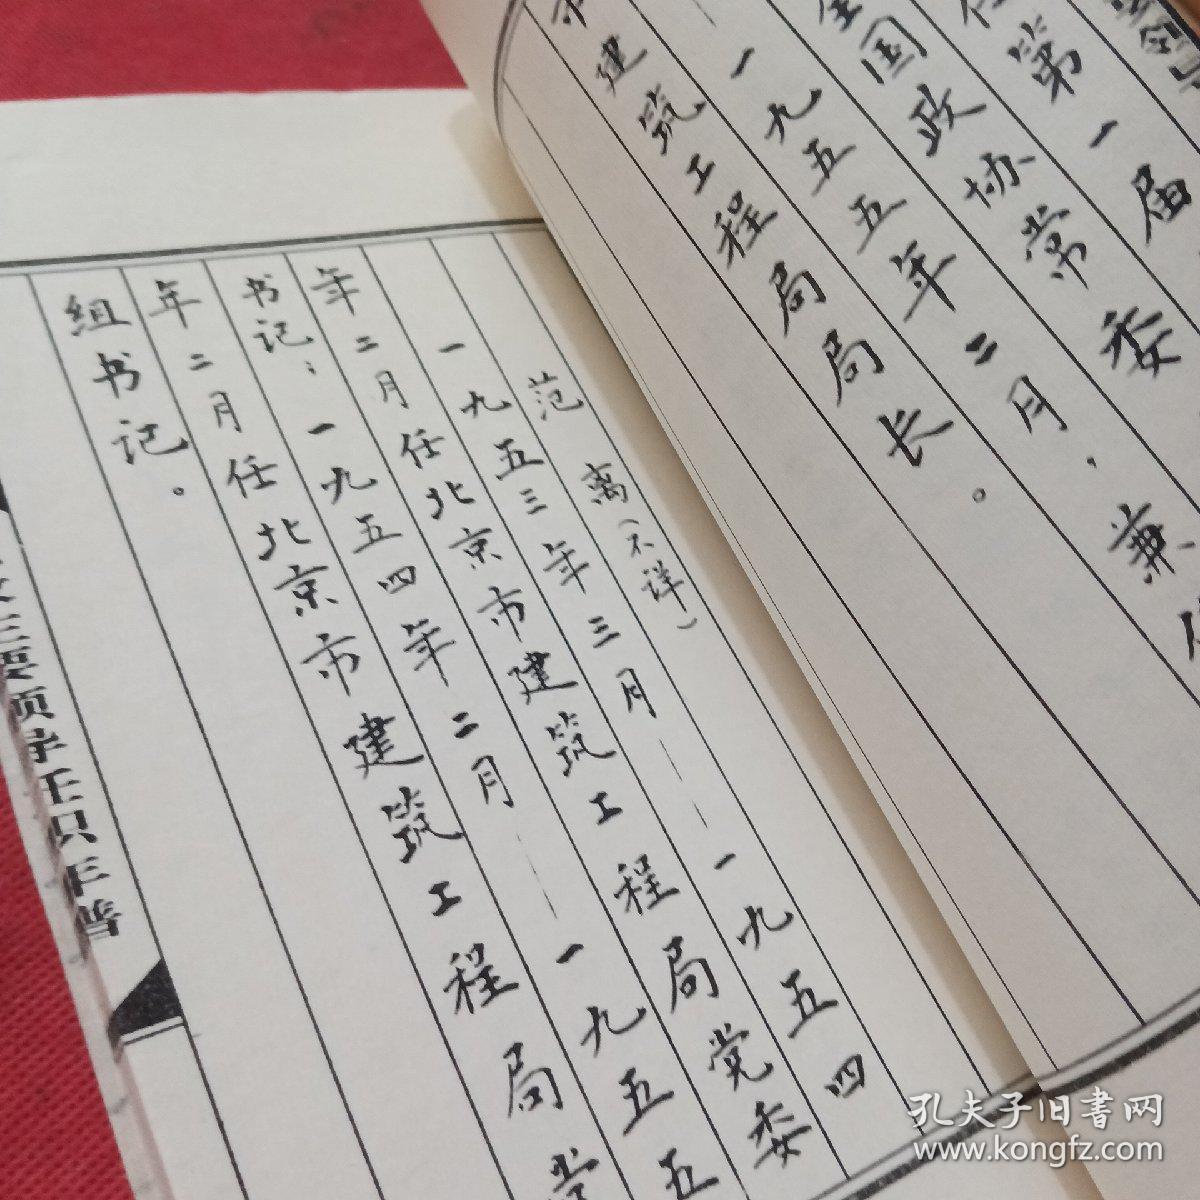 任第一届
全国政协常委
一九五五年二月，兼任
市建筑工程局局长。
范离（不详）
一九五三年三月——一九五四
年二月任北京市建筑工程局党委
书记；一九五四年二月——一九五五
年二月任北京市建筑工程局党
组书记。
孔夫子旧書网
www.kongfz.com